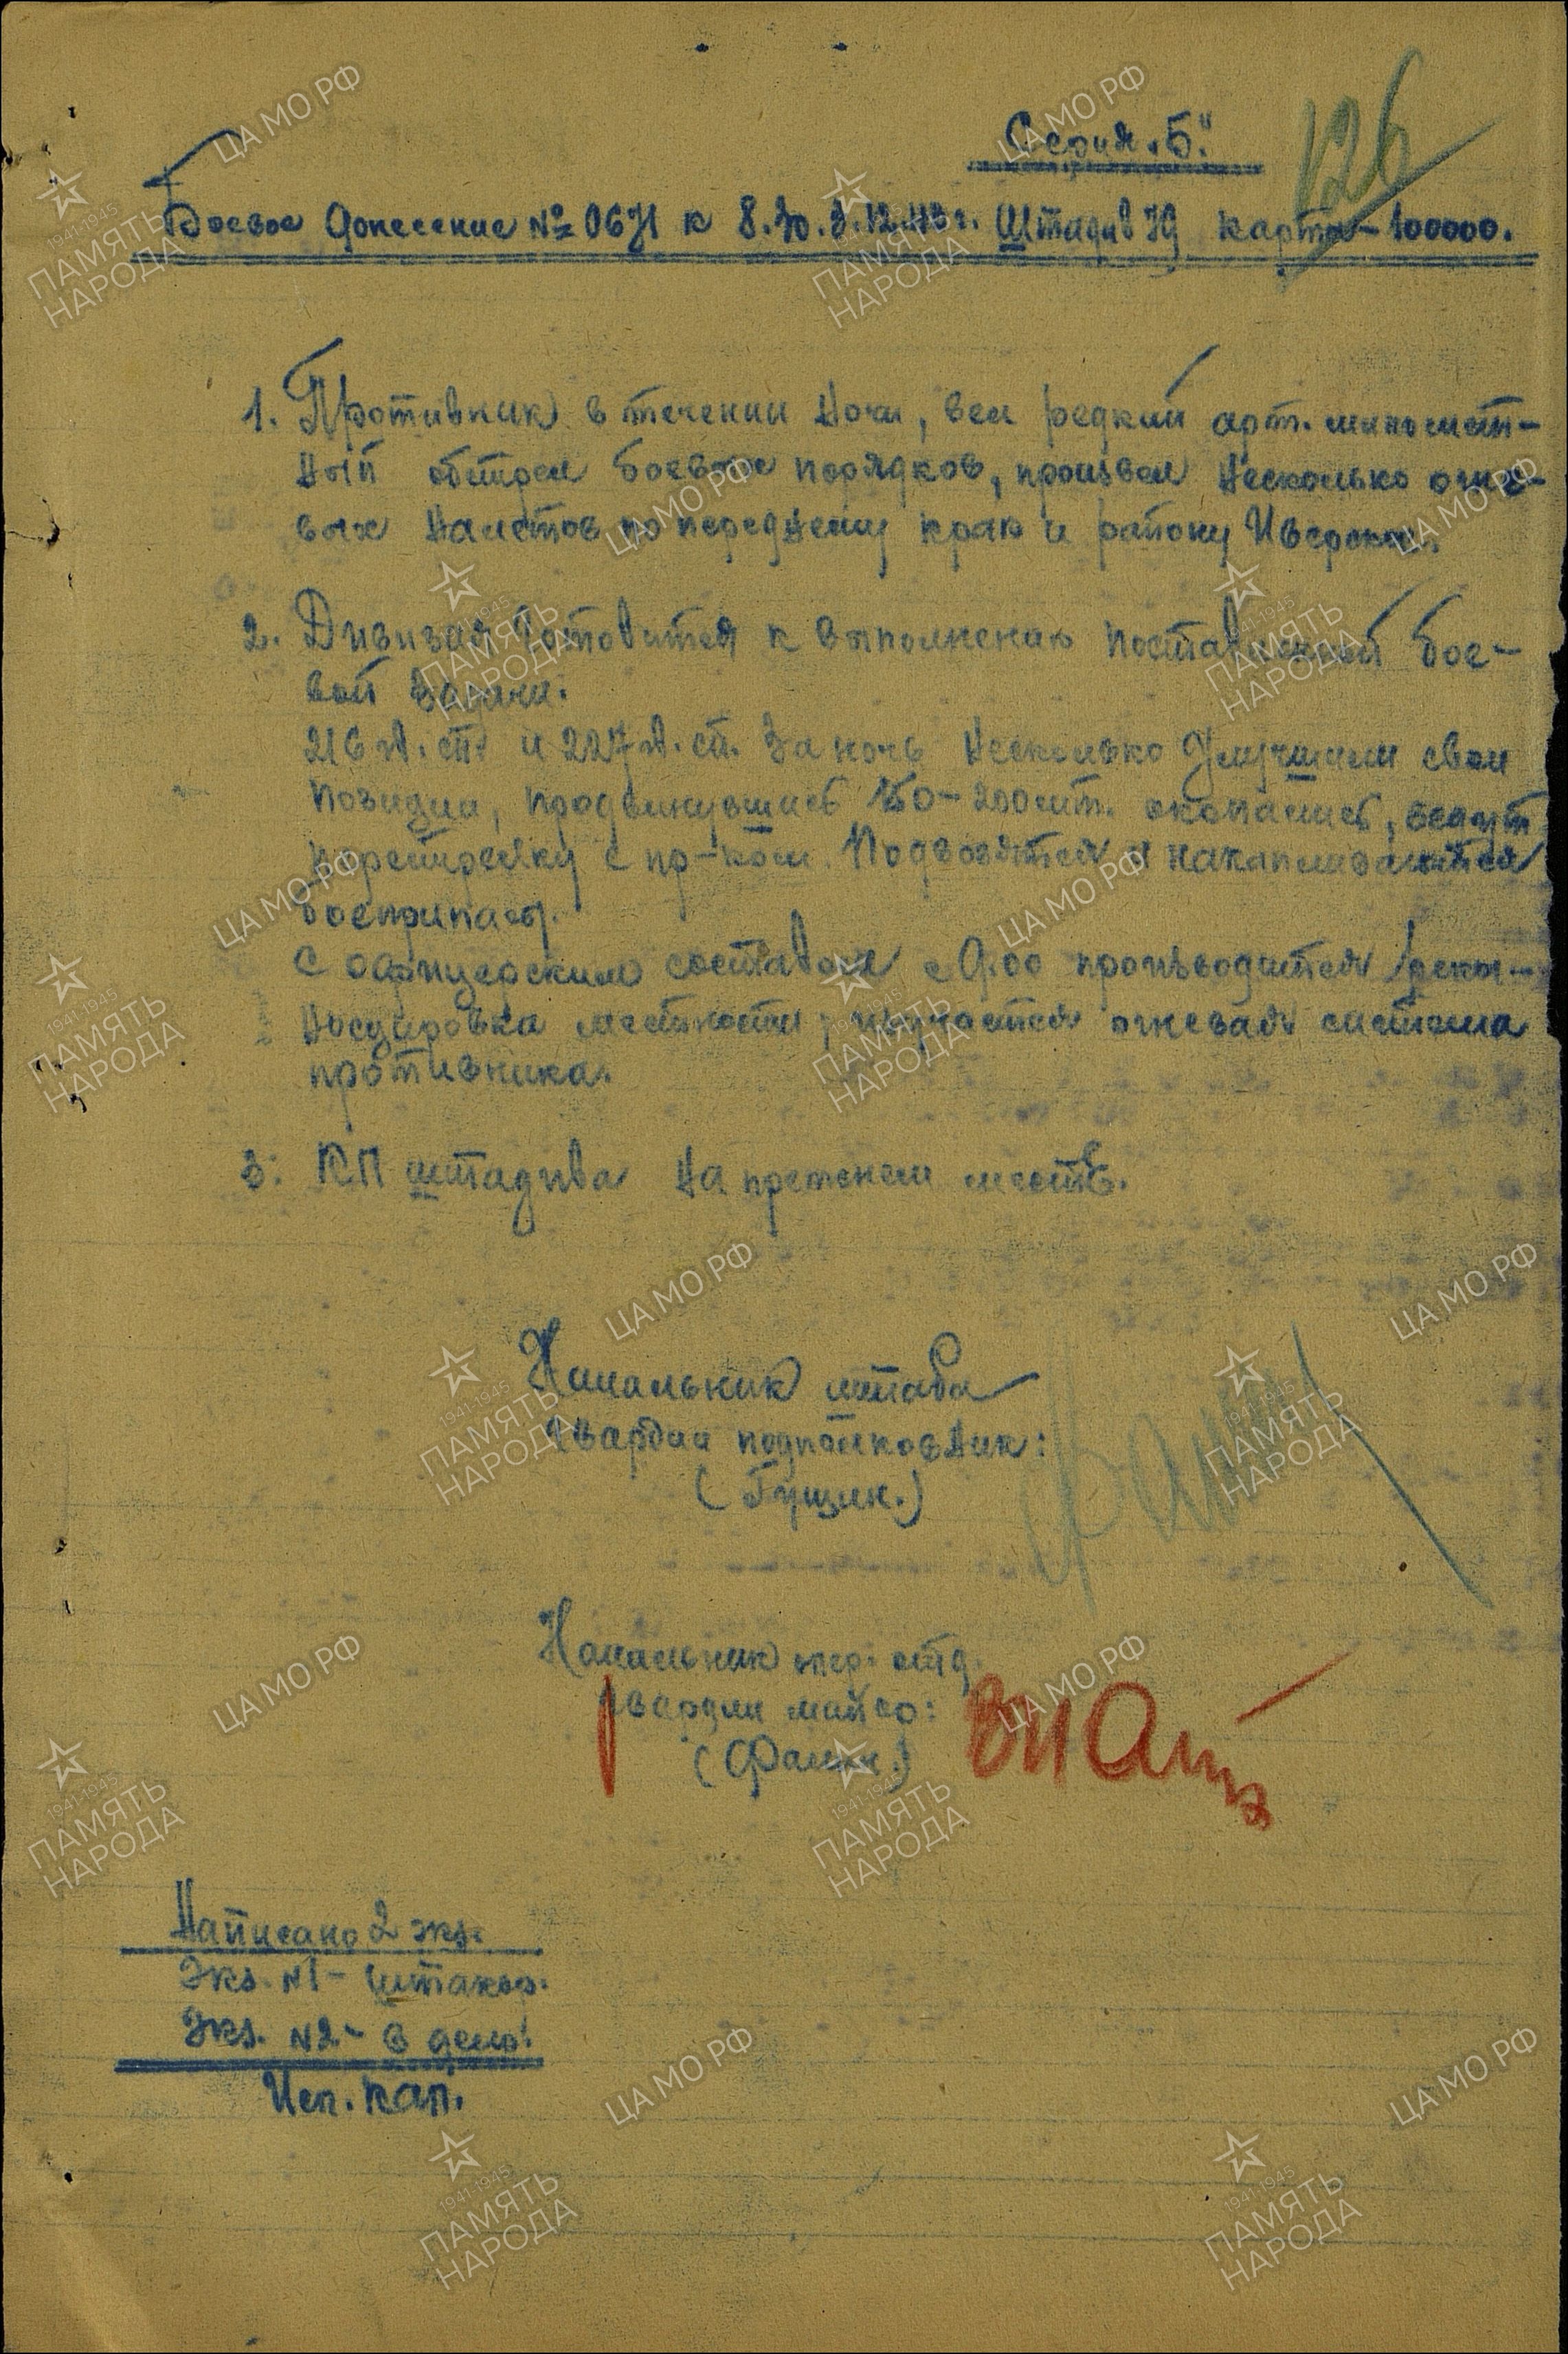 126
Серия „Б"
Боевое донесение № 0671 к 8.30. 3.12.43 г. Штадив 79 карта - 100000.
1. Противник в течении ночи, вел редкий арт. миномет-
ный обстрел боевых порядков, произвел несколько огне-
вых налетов по переднему краю и району
2. Дивизия готовится к выполнению поставленной бое-
вой задачи.
216 п. и 227 п. за ночь несколько улучшили свои
позиции, продвинувшись 150-200 мт. окопались, ведут
перестрелку с пр-ком. Подвозятся и накапливаются
боеприпасы.
С офицерским составом с 9.00 производится реког-
носцировка местности, изучается огневая система
противника.
3. КП штадива на прежнем месте.
Начальник штаба
гвардии подполковник:
(Гущин.)
Начальник опер. отд.
гвардии майор:
(Фамин.)
Написано 2 экз.
Экз. №1 - штакор.
Экз. №2 - в дело.
Исп. кап.
ЦАМО РФ
1941-1945
ПАМЯТЬ
НАРОДА